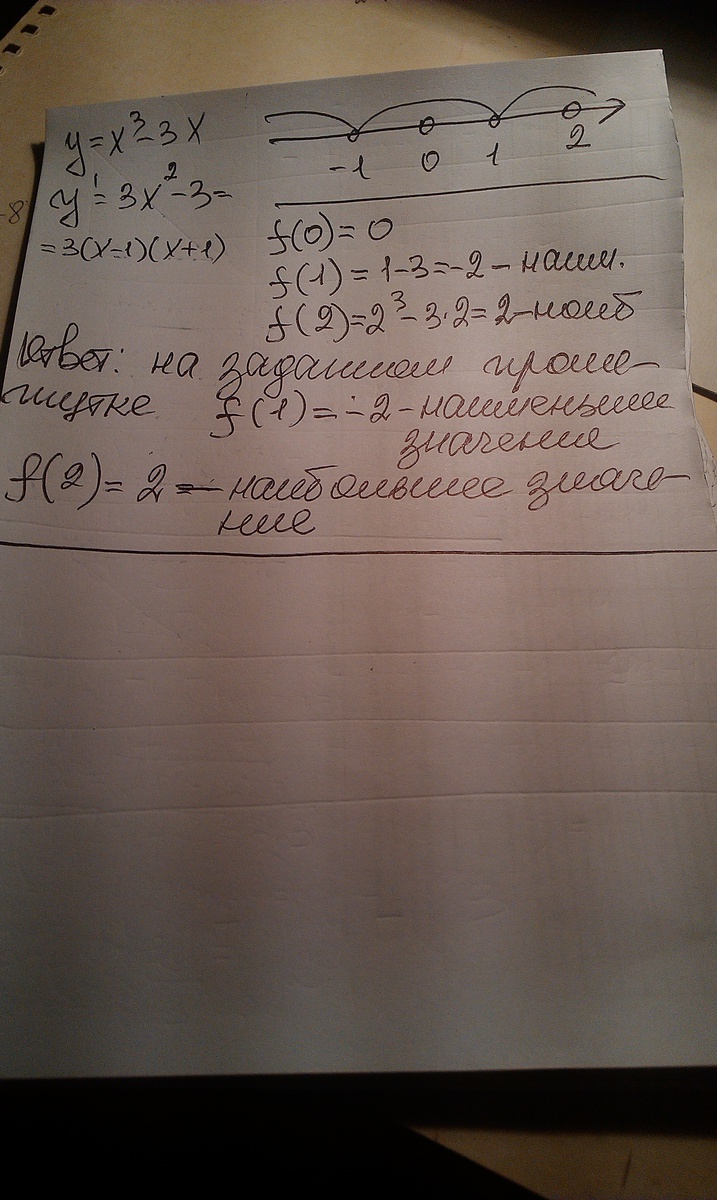 y=x³-3x
y'=3x²-3=
=3(x-1)(x+1)
-1 0 1 2
f(0)=0
f(1)=1-3=-2-наим.
f(2)=2³-3·2=2-наиб
Ответ: на заданном проме-
жутке f(1)=-2-наименьшее
значение
f(2)=2-наибольшее значе-
ние
-8